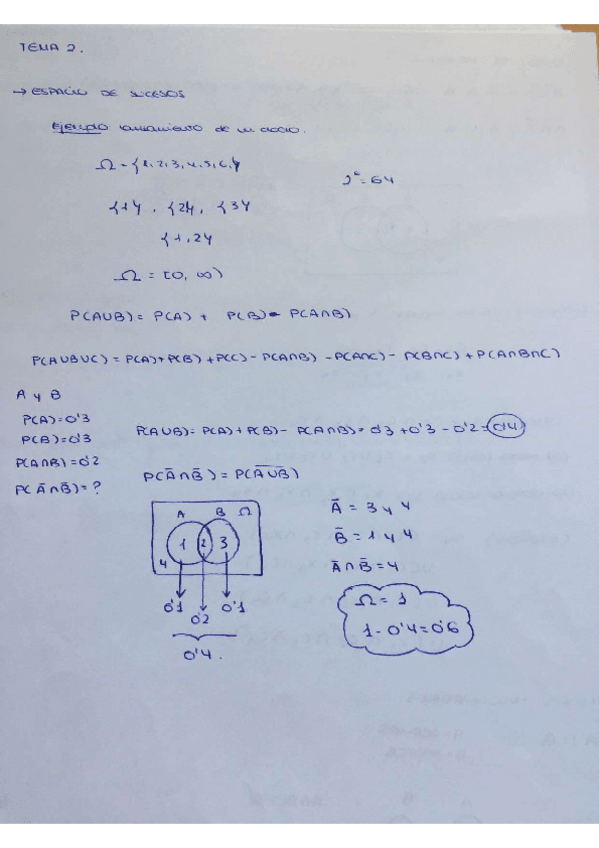 TEMA 2.
→ ESPACIO DE SUCESOS
Ejemplo lanzamiento de un dado.
Ω = {1,2,3,4,5,6,}
2⁶ = 64
{1}, {2}, {3}
{1,2}
Ω = [0, ∞)
P(A∪B) = P(A) + P(B) - P(A∩B)
P(A∪B∪C) = P(A)+P(B)+P(C)-P(A∩B)-P(A∩C)-P(B∩C)+P(A∩B∩C)
A y B
P(A)=0'3
P(B)=0'3
P(A∪B)=P(A)+P(B)-P(A∩B)=0'3+0'3-0'2=0'4
P(A∩B)=0'2
P(Ā∩B̄)=?
P(Ā∩B̄) = P(A̅∪̅B̅)
A B Ω
1 2 3
4
0'1 0'2 0'1
0'4.
Ā = 3 y 4
B̄ = 1 y 4
Ā∩B̄ = 4
Ω = 1
1-0'4=0'6